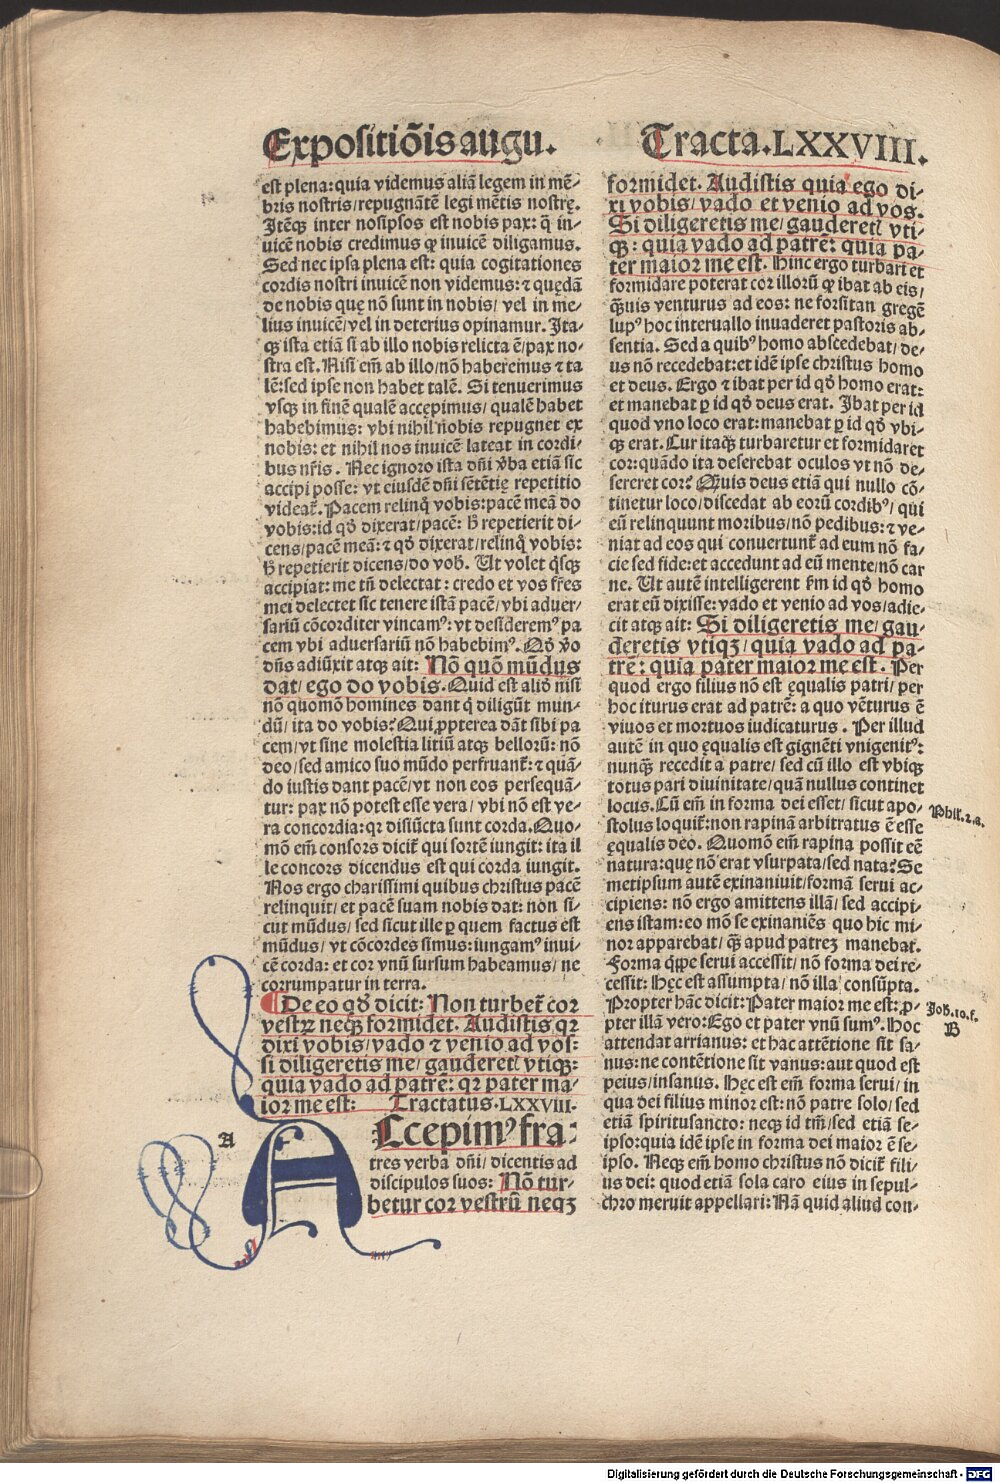 Expositiõis augu.
Tracta.LXXVIII.
est plena: quia videmus aliã legem in mẽ-
bris nostris/ repugnãtẽ legi mẽtis nostrę.
Itẽqꝫ inter nosipsos est nobis pax: q̃ in-
uicẽ nobis credimus ꝙ inuicẽ diligamus.
Sed nec ipsa plena est: quia cogitationes
cordis nostri inuicẽ non videmus: ⁊ quędã
de nobis quę nõ sunt in nobis/ vel in me-
lius inuicẽ/ vel in deterius opinamur. Ita-
qꝫ ista etiã si ab illo nobis relicta ẽ/ pax no-
stra est. Nisi em̃ ab illo/ nõ haberemus ⁊ ta
lẽ: sed ipse non habet talẽ. Si tenuerimus
vsqꝫ in finẽ qualẽ accępimus/ qualẽ habet
habebimus: vbi nihil nobis repugnet ex
nobis: et nihil nos inuicẽ lateat in cordi-
bus nr̃is. Nec ignoro ista dñi v̾ba etiã sic
accipi posse: vt eiusdẽ dñi sẽtẽtię repetitio
videat̃. Pacem relinq̃ vobis: pacẽ meã do
vobis: id qđ dixerat/ pacẽ: h̾ repetierit di-
cens/ pacẽ meã: ⁊ qđ dixerat/ relinq̃ vobis:
h̾ repetierit dicens/ do vob̾. Ut volet q̃sqꝫ
accipiat: me tñ delectat: credo et vos fr̃es
mei delectet sic tenere istã pacẽ/ vbi aduer-
sariũ cõcorditer vincamꝰ: vt desideremꝰ pa
cem vbi aduersariũ nõ habebimꝰ. Qđ v̾o
dñs adiũxit atqꝫ ait: Nõ quõ mũdus
dat/ ego do vobis. Quid est aliđ nisi
nõ quomõ homines dant q̃ diligũt mun-
dũ/ ita do vobis? Qui ꝓpterea dãt sibi pa
cem/ vt sine molestia litiũ atqꝫ bellorũ: nõ
deo/ sed amico suo mũdo perfruant̃: ⁊ quã-
do iustis dant pacẽ/ vt non eos persequã-
tur: pax nõ potest esse vera/ vbi nõ est ve-
ra concordia: qꝛ disiũcta sunt corda. Quo-
mõ em̃ consors dicit̃ qui sortẽ iungit: ita il
le concors dicendus est qui corda iungit.
Nos ergo charissimi quibus christus pacẽ
relinquit/ et pacẽ suam nobis dat: non si-
cut mũdus/ sed sicut ille ꝑ quem factus est
mũdus/ vt cõcordes simus: iungamꝰ inui-
cẽ corda: et cor vnũ sursum habeamus/ ne
corrumpatur in terra.
¶ De eo qđ dicit: Non turbet̃ cor
vestꝝ neqꝫ formidet. Audistis qꝛ
dixi vobis/ vado ⁊ venio ad vos:
si diligeretis me/ gauderetꝭ vtiqꝫ:
quia vado ad patrẽ: qꝛ pater ma-
ior me est: Tractatus.LXXVIII.
A
ACcepimꝰ fra-
tres verba dñi/ dicentis ad
discipulos suos: Nõ tur-
betur cor vestrũ neqꝫ
formidet. Audistis quia ego di-
xi vobis/ vado et venio ad vos.
Si diligeretis me/ gauderetꝭ vti-
qꝫ: quia vado ad patrẽ: quia pa-
ter maior me est. Hinc ergo turbari et
formidare poterat cor illorũ ꝙ ibat ab eis/
q̃uis venturus ad eos: ne forsitan gregẽ
lupꝰ hoc interuallo inuaderet pastoris ab-
sentia. Sed a quibꝰ homo abscedebat/ de-
us nõ recedebat: et idẽ ipse christus homo
et deus. Ergo ⁊ ibat per id qđ homo erat:
et manebat ꝑ id qđ deus erat. Ibat per id
quod vno loco erat: manebat ꝑ id qđ vbi-
qꝫ erat. Cur itaqꝫ turbaretur et formidaret
cor: quãdo ita deserebat oculos vt nõ de-
sereret cor? Quis deus etiã qui nullo cõ-
tinetur loco/ discedat ab eorũ cordibꝰ/ qui
eũ relinquunt moribus/ nõ pedibus: ⁊ ve-
niat ad eos qui conuertunt̃ ad eum nõ fa-
cie sed fide: et accedunt ad eũ mente/ nõ car
ne. Ut autẽ intelligerent fm̃ id qđ homo
erat eũ dixisse: vado et venio ad vos/ adie-
cit atqꝫ ait: Si diligeretis me/ gau-
deretis vtiqꝫ/ quia vado ad pa-
trẽ: quia pater maior me est. Per
quod ergo filius nõ est ęqualis patri/ per
hoc iturus erat ad patrẽ: a quo vẽturus ẽ
viuos et mortuos iudicaturus. Per illud
autẽ in quo ęqualis est gignẽti vnigenitꝰ:
nunqꝫ recedit a patre/ sed cũ illo est vbiqꝫ
totus pari diuinitate/ quã nullus continet
locus. Cũ em̃ in forma dei esset/ sicut apo-
stolus loquit̃: non rapinã arbitratus ẽ esse
ęqualis deo. Quomõ em̃ rapina possit eẽ
natura: quę nõ erat vsurpata/ sed nata? Se
metipsum autẽ exinaniuit/ formã serui ac-
cipiens: nõ ergo amittens illã/ sed accipi-
ens istam: eo mõ se exinaniẽs quo hic mi-
nor apparebat/ q̃ apud patrẽ manebat.
Forma q̃ppe serui accessit/ nõ forma dei re-
cessit: Hęc est assumpta/ nõ illa consũpta.
Propter hãc dicit: Pater maior me est: ꝓ-
pter illã vero: Ego et pater vnũ sumꝰ. Hoc
attendat arrianus: et hac attẽtione sit sa-
nus: ne contẽtione sit vanus: aut quod est
peius/ insanus. Hęc est em̃ forma serui/ in
qua dei filius minor est: nõ patre solo/ sed
etiã spiritusancto: neqꝫ id tm̃/ sed etiã se-
ipso: quia idẽ ipse in forma dei maior ẽ se-
ipso. Neqꝫ em̃ homo christus nõ dicit̃ fili-
us dei: quod etiã sola caro eius in sepul-
chro meruit appellari: Nã quid aliud con-
Phil̃.2.a.
Joh̃.10.f.
B
Digitalisierung gefördert durch die Deutsche Forschungsgemeinschaft - DFG